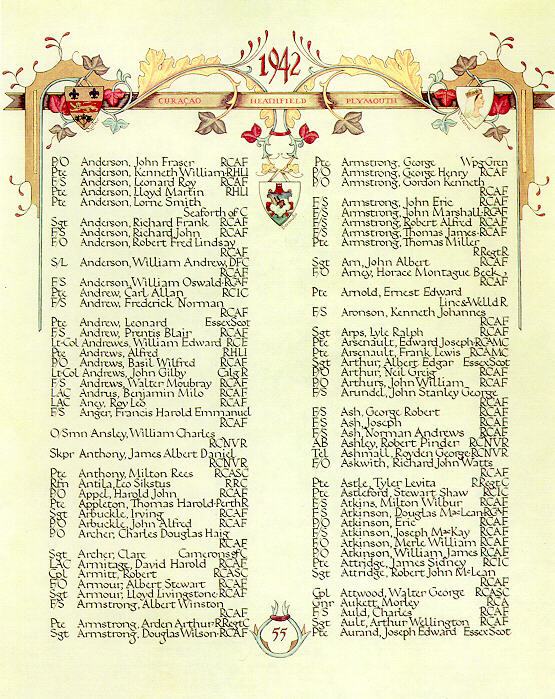 1942
CURAÇAO HEATHFIELD PLYMOUTH
P/O Anderson, John Fraser RCAF
Pte Anderson, Kenneth William-RHLI
F/S Anderson, Leonard Roy RCAF
Pte Anderson, Lloyd Martin RHLI
Pte Anderson, Lorne Smith
Seaforth of C
Sgt Anderson, Richard Frank RCAF
F/S Anderson, Richard John RCAF
F/O Anderson, Robert Fred Lindsay
RCAF
S/L Anderson, William Andrew, DFC
RCAF
F/S Anderson, William Oswald-RCAF
Pte Andrew, Carl Allan RCIC
F/S Andrew, Frederick Norman
RCAF
Pte Andrew, Leonard EssexScot
F/S Andrew, Prentis Blair RCAF
Lt-Col Andrewes, William Edward RCE
Pte Andrews, Alfred RHLI
P/O Andrews, Basil Wilfred RCAF
Lt-Col Andrews, John Gilby Calg R
F/S Andrews, Walter Moubray RCAF
LAC Andrus, Benjamin Milo RCAF
LAC Aney, Roy Leo RCAF
F/S Anger, Francis Harold Emmanuel
RCAF
O/Smn Ansley, William Charles
RCNVR
Skpr Anthony, James Albert Daniel
RCNVR
Pte Anthony, Milton Rees RCASC
Rfn Antila, Leo Sikstus RRC
P/O Appel, Harold John RCAF
Pte Appleton, Thomas Harold-Perth R
Sgt Arbuckle, Irving RCAF
P/O Arbuckle, John Alfred RCAF
P/O Archer, Charles Douglas Haig
RCAF
Sgt Archer, Clare Camerons of C
LAC Armitage, David Harold RCAF
Cpl Armitt, Robert RCASC
F/O Armour, Albert Stewart RCAF
Sgt Armour, Lloyd Livingstone-RCAF
F/S Armstrong, Albert Winston
RCAF
Pte Armstrong, Arden Arthur-RRegtC
Sgt Armstrong, Douglas Wilson-RCAF
Pte Armstrong, George WpgGren
P/O Armstrong, George Henry RCAF
P/O Armstrong, Gordon Kenneth
RCAF
F/S Armstrong, John Eric RCAF
F/S Armstrong, John Marshall-RCAF
F/S Armstrong, Robert Alfred RCAF
F/S Armstrong, Thomas James-RCAF
Pte Armstrong, Thomas Miller
RRegtR
Sgt Arn, John Albert RCAF
F/O Arney, Horace Montague Beck
RCAF
Pte Arnold, Ernest Edward
Linc&Welld R
F/S Aronson, Kenneth Johannes
RCAF
Sgt Arps, Lyle Ralph RCAF
Pte Arsenault, Edward Joseph-RCAMC
Pte Arsenault, Frank Lewis RCAMC
Sgt Arthur, Albert Edgar EssexScot
P/O Arthur, Neil Greig RCAF
P/O Arthurs, John William RCAF
F/S Arundel, John Stanley George
RCAF
F/S Ash, George Robert RCAF
F/S Ash, Joseph RCAF
F/S Ash, Norman Andrews RCAF
AB Ashley, Robert Pinder RCNVR
Tel Ashmall, Royden George RCNVR
F/O Askwith, Richard John Watts
RCAF
Pte Astle, Tyler Levita RRegtC
Pte Astleford, Stewart Shaw RCIC
F/S Atkins, Milton Wilbur RCAF
F/S Atkinson, Douglas MacLean RCAF
P/O Atkinson, Eric RCAF
F/S Atkinson, Joseph McKay RCAF
F/O Atkinson, Merle William RCAF
P/O Atkinson, William James RCAF
Pte Attridge, James Sidney RCIC
Sgt Attridge, Robert John McLean
RCAF
Cpl Attwood, Walter George RCASC
Gnr Aukett, Morley RCA
F/S Auld, Charles RCAF
Sgt Ault, Arthur Wellington RCAF
Pte Aurand, Joseph Edward EssexScot
55